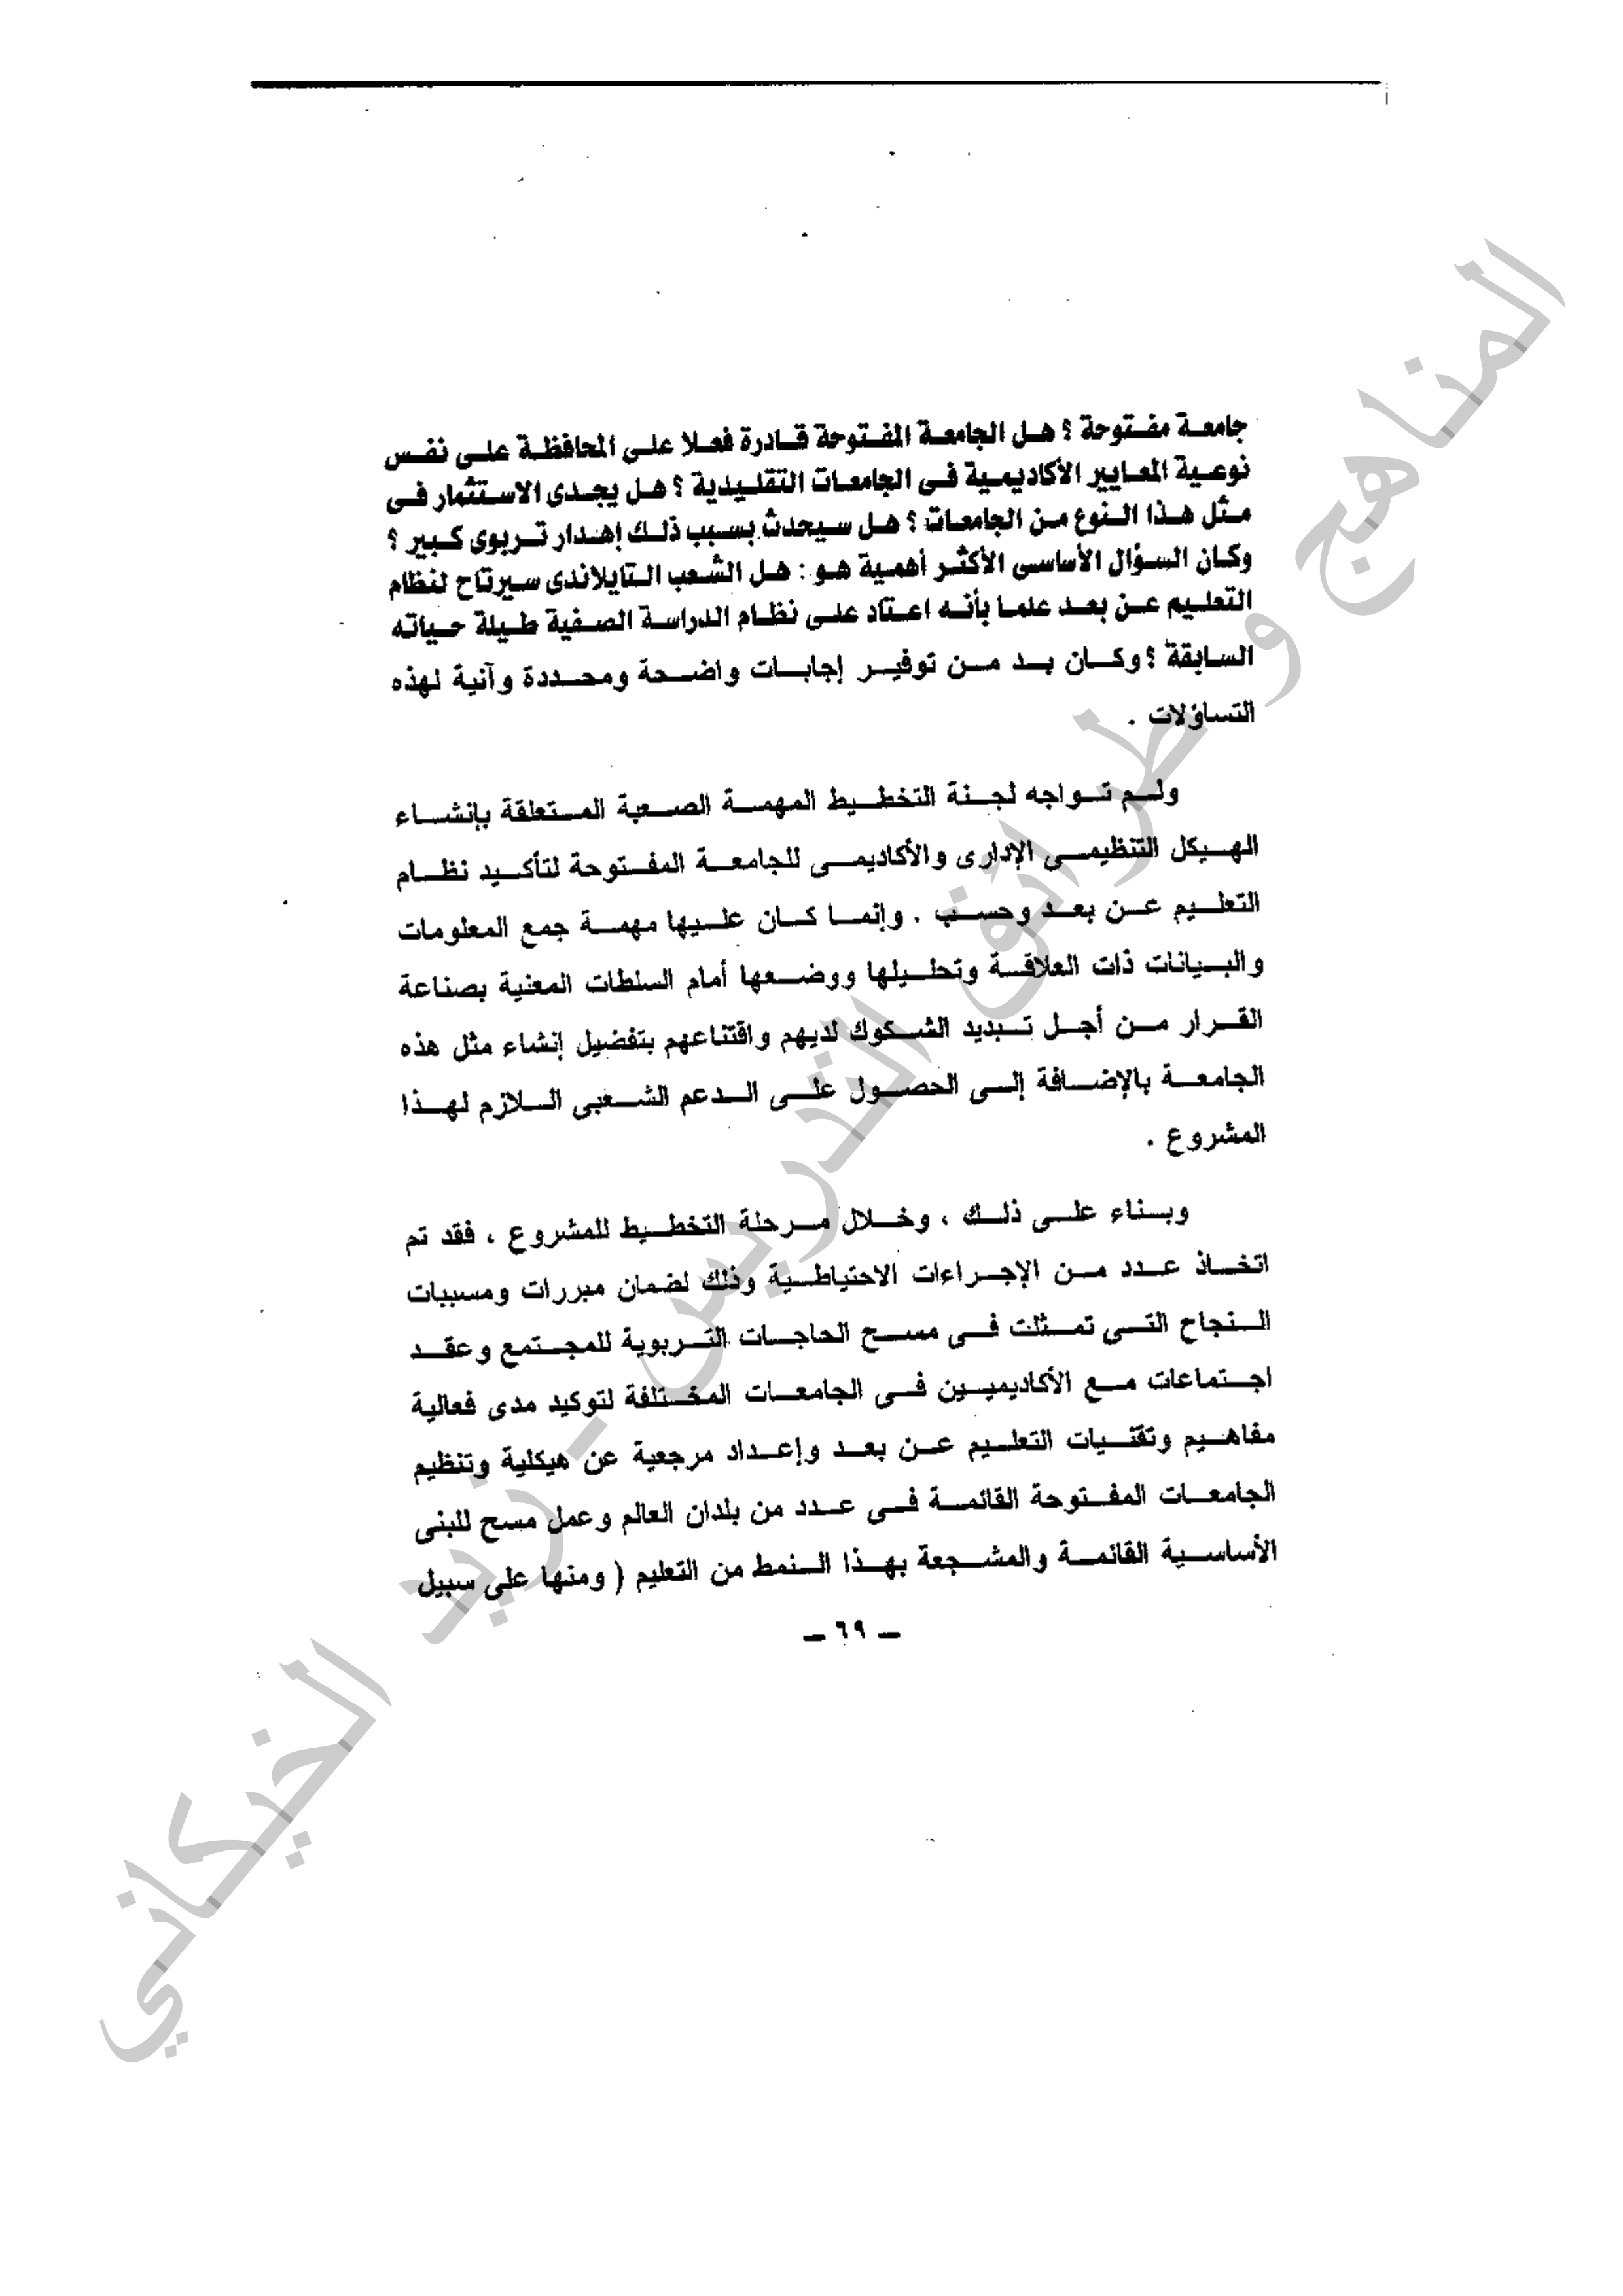 جامعة مفتوحة ؟ هل الجامعة المفتوحة قادرة فعلا على المحافظة على نفس
نوعية المعايير الأكاديمية فى الجامعات التقليدية ؟ هل يجدى الاستثمار فى
مثل هذا النوع من الجامعات ؟ هل سيحدث بسبب ذلك إهدار تربوى كبير ؟
وكان السؤال الأساسى الأكثر أهمية هو : هل الشعب التايلاندى سيرتاح لنظام
التعليم عن بعد علما بأنه اعتاد على نظام الدراسة الصفية طيلة حياته
السابقة ؟ وكان بد من توفير إجابات واضحة ومحددة وآنية لهذه
التساؤلات .
ولم تواجه لجنة التخطيط المهمة الصعبة المتعلقة بإنشاء
الهيكل التنظيمى الإدارى والأكاديمى للجامعة المفتوحة لتأكيد نظام
التعليم عن بعد وحسب . وإنما كان عليها مهمة جمع المعلومات
والبيانات ذات العلاقة وتحليلها ووضعها أمام السلطات المعنية بصناعة
القرار من أجل تبديد الشكوك لديهم واقتناعهم بتفضيل إنشاء مثل هذه
الجامعة بالإضافة إلى الحصول على الدعم الشعبى اللازم لهذا
المشروع .
وبناء على ذلك ، وخلال مرحلة التخطيط للمشروع ، فقد تم
اتخاذ عدد من الإجراءات الاحتياطية وذلك لضمان مبررات ومسببات
النجاح التى تمثلت فى مسح الحاجات التربوية للمجتمع وعقد
اجتماعات مع الأكاديميين فى الجامعات المختلفة لتوكيد مدى فعالية
مفاهيم وتقنيات التعليم عن بعد وإعداد مرجعية عن هيكلية وتنظيم
الجامعات المفتوحة القائمة فى عدد من بلدان العالم وعمل مسح للبنى
الأساسية القائمة والمشجعة بهذا النمط من التعليم ( ومنها على سبيل
— ٦٩ —
المناهج وطرائق التدريس - زيد الخيكاني